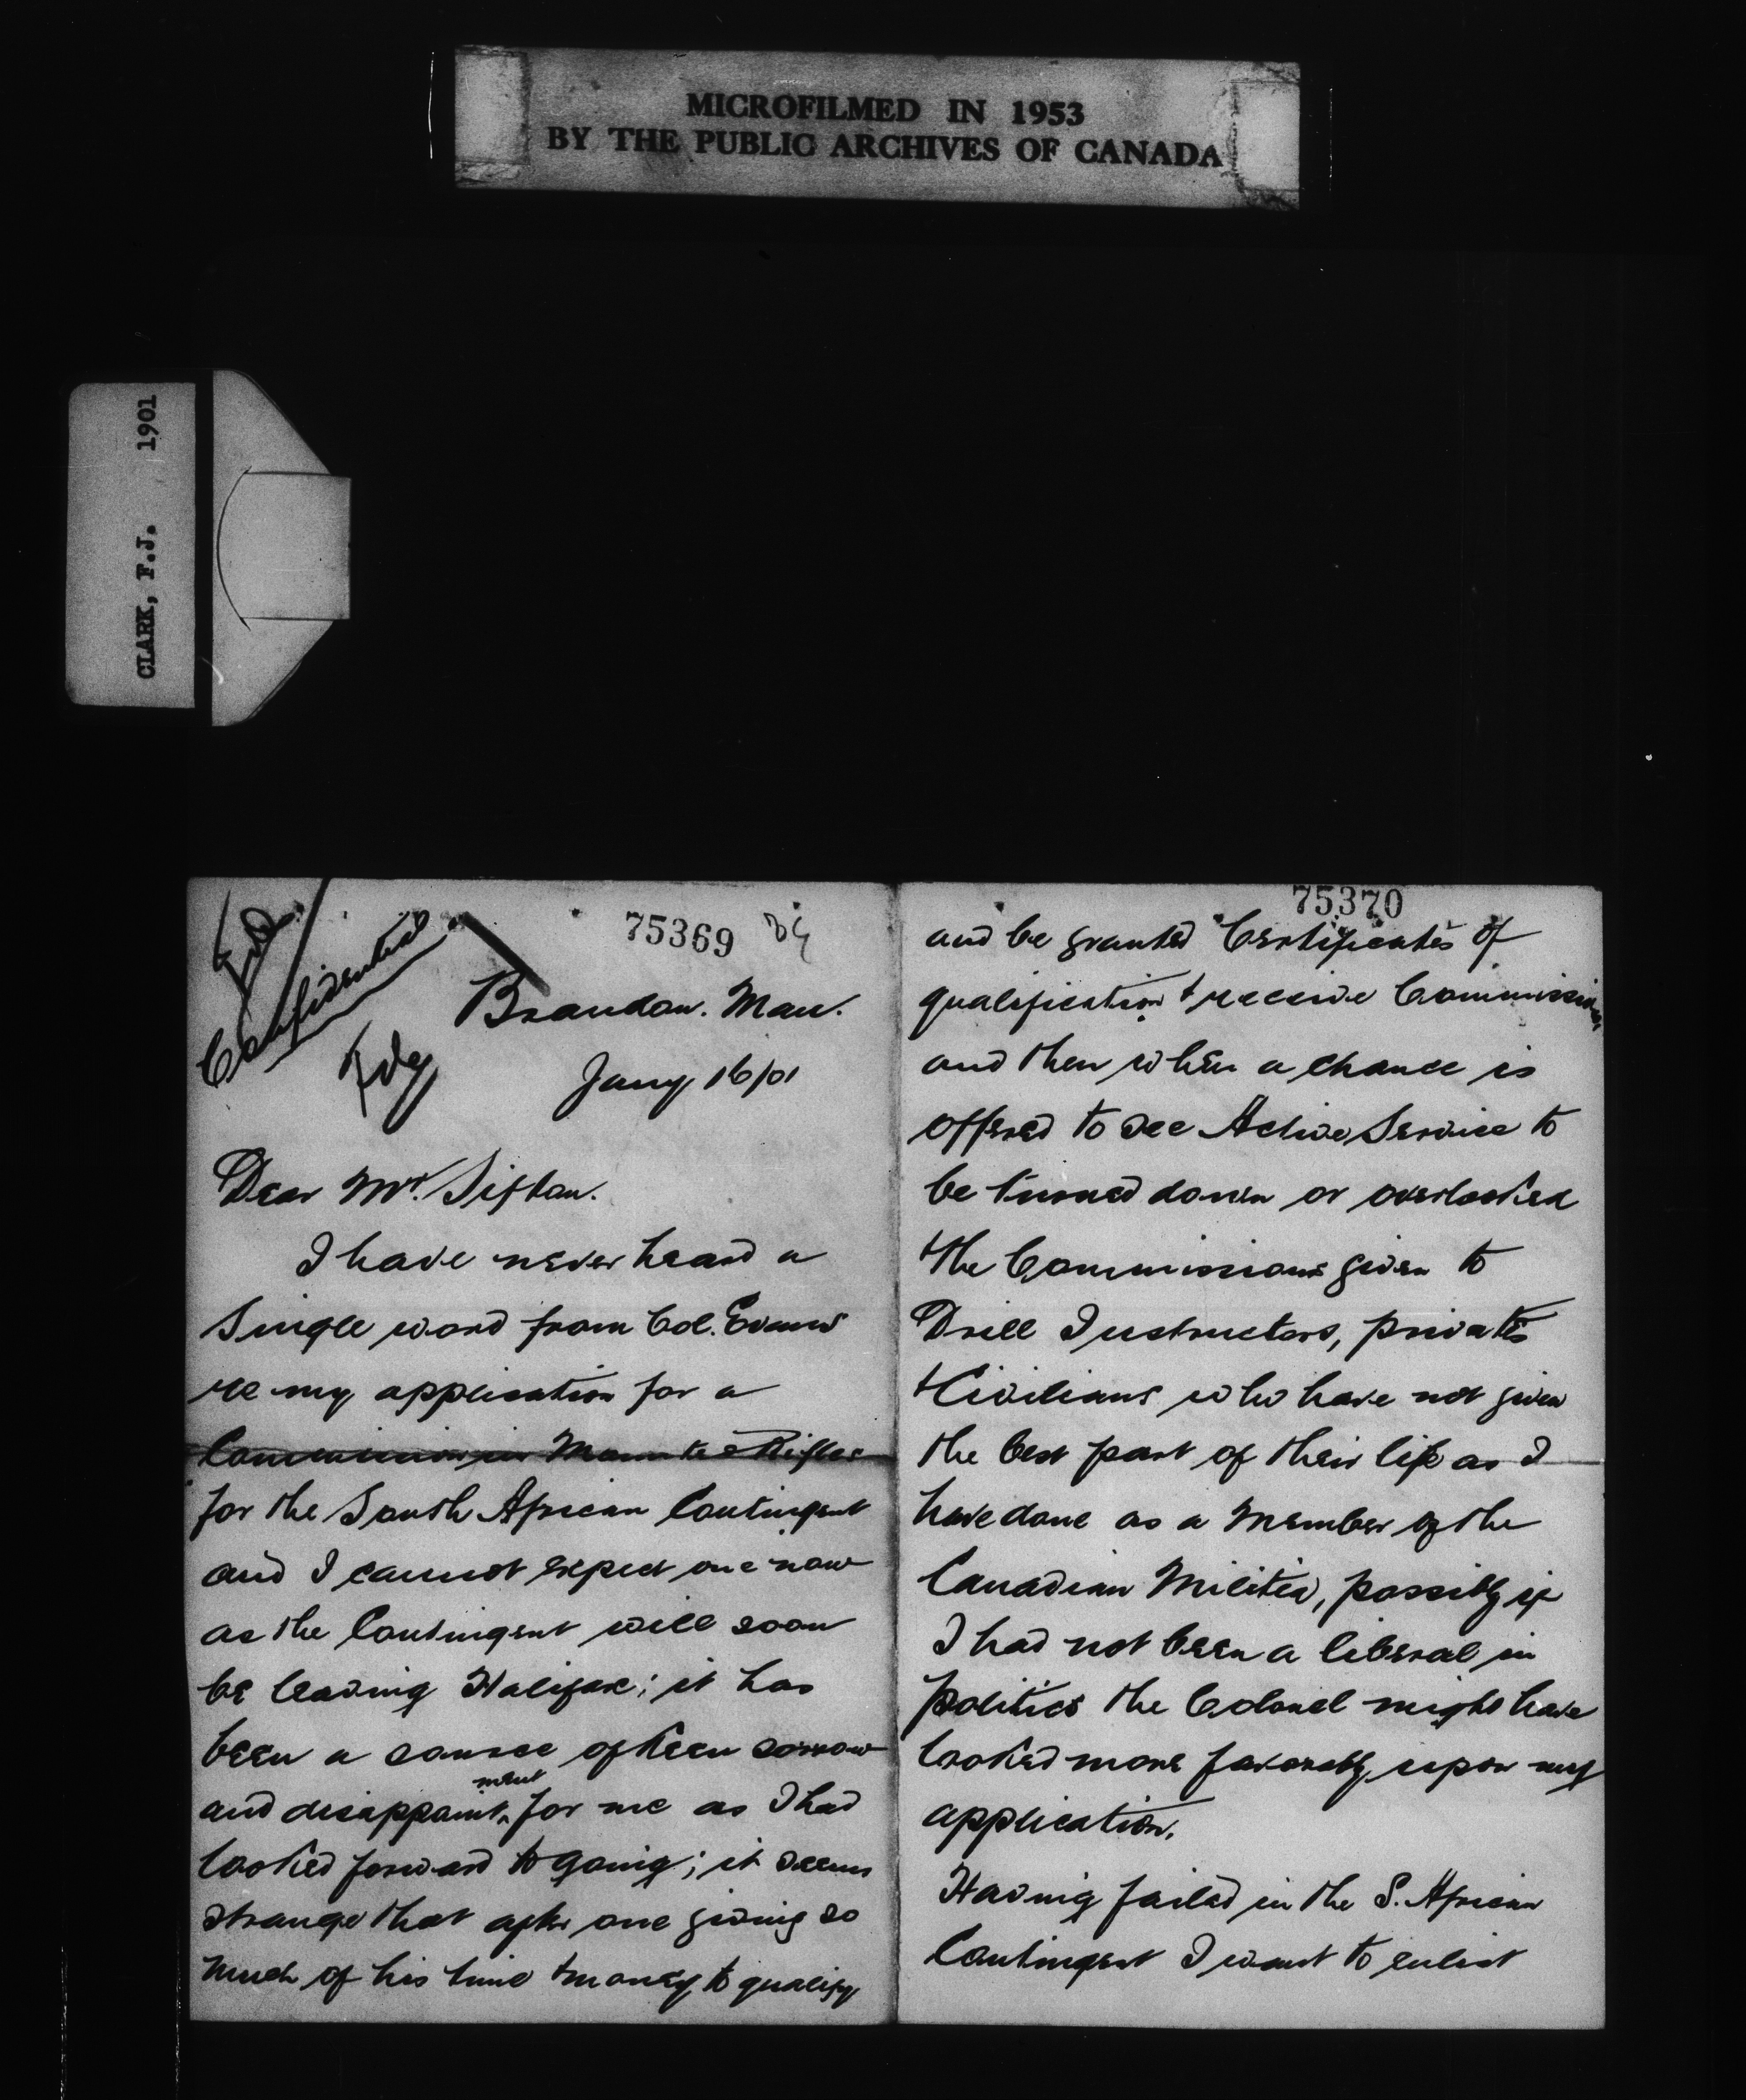 MICROFILMED IN 1953
BY THE PUBLIC ARCHIVES OF CANADA
CLARK, F.J. 1901
75369
Confidential
Brandon. Man.
Jany 16/01
Dear Mr. Sifton.
I have never heard a
single word from Col. Evans
re my application for a
Commission in Mounted Rifles
for the South African Contingent
and I cannot expect one now
as the Contingent will soon
be leaving Halifax; it has
been a source of keen sorrow
and disappointment for me as I had
looked forward to going; it seems
strange that after one giving so
much of his time & money to qualify
75370
and be granted Certificates of
qualification & receive Commissions
and then when a chance is
offered to see Active Service to
be turned down or overlooked
& the Commissions given to
Drill Instructors, privates
& Civilians who have not given
the best part of their life as I
have done as a Member of the
Canadian Militia, possibly if
I had not been a liberal in
politics the Colonel might have
looked more favorably upon my
application.
Having failed in the S. African
Contingent I want to enlist